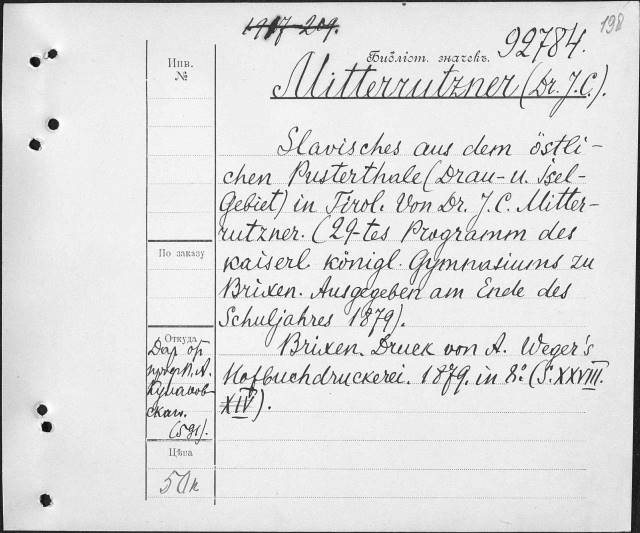 198
1917-209.
Библіот. значекъ. 92784.
Mitterrutzner (Dr. J.C.).
Инв.
№
Slavisches aus dem östli-
chen Pusterthale (Drau- u. Isel-
Gebiet) in Tirol. Von Dr. J.C. Mitter-
rutzner. (29-tes Programm des
kaiserl. königl. Gymnasiums zu
Brixen. Ausgegeben am Ende des
Schuljahres 1879).
Brixen. Druck von A. Weger's
Hofbuchdruckerei. 1879. in 8.° (S. XXVIII.
XIV).
По заказу
Откуда
Дар от
проф. П. А.
Кулаков-
скаг.
(591).
Цѣна
50 к